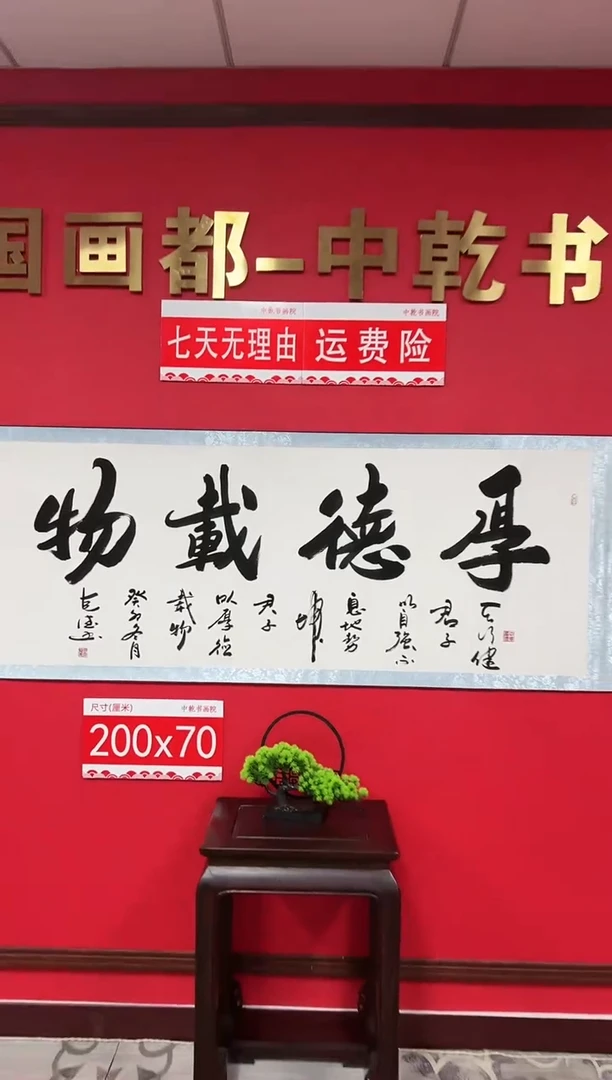 国画都-中乾书
中乾书画院
中乾书画院
七天无理由
运费险
厚德載物
天行健
君子
以自强不
息地势
坤
君子
以厚德
载物
癸卯冬月
尺寸(厘米)
中乾书画院
200x70